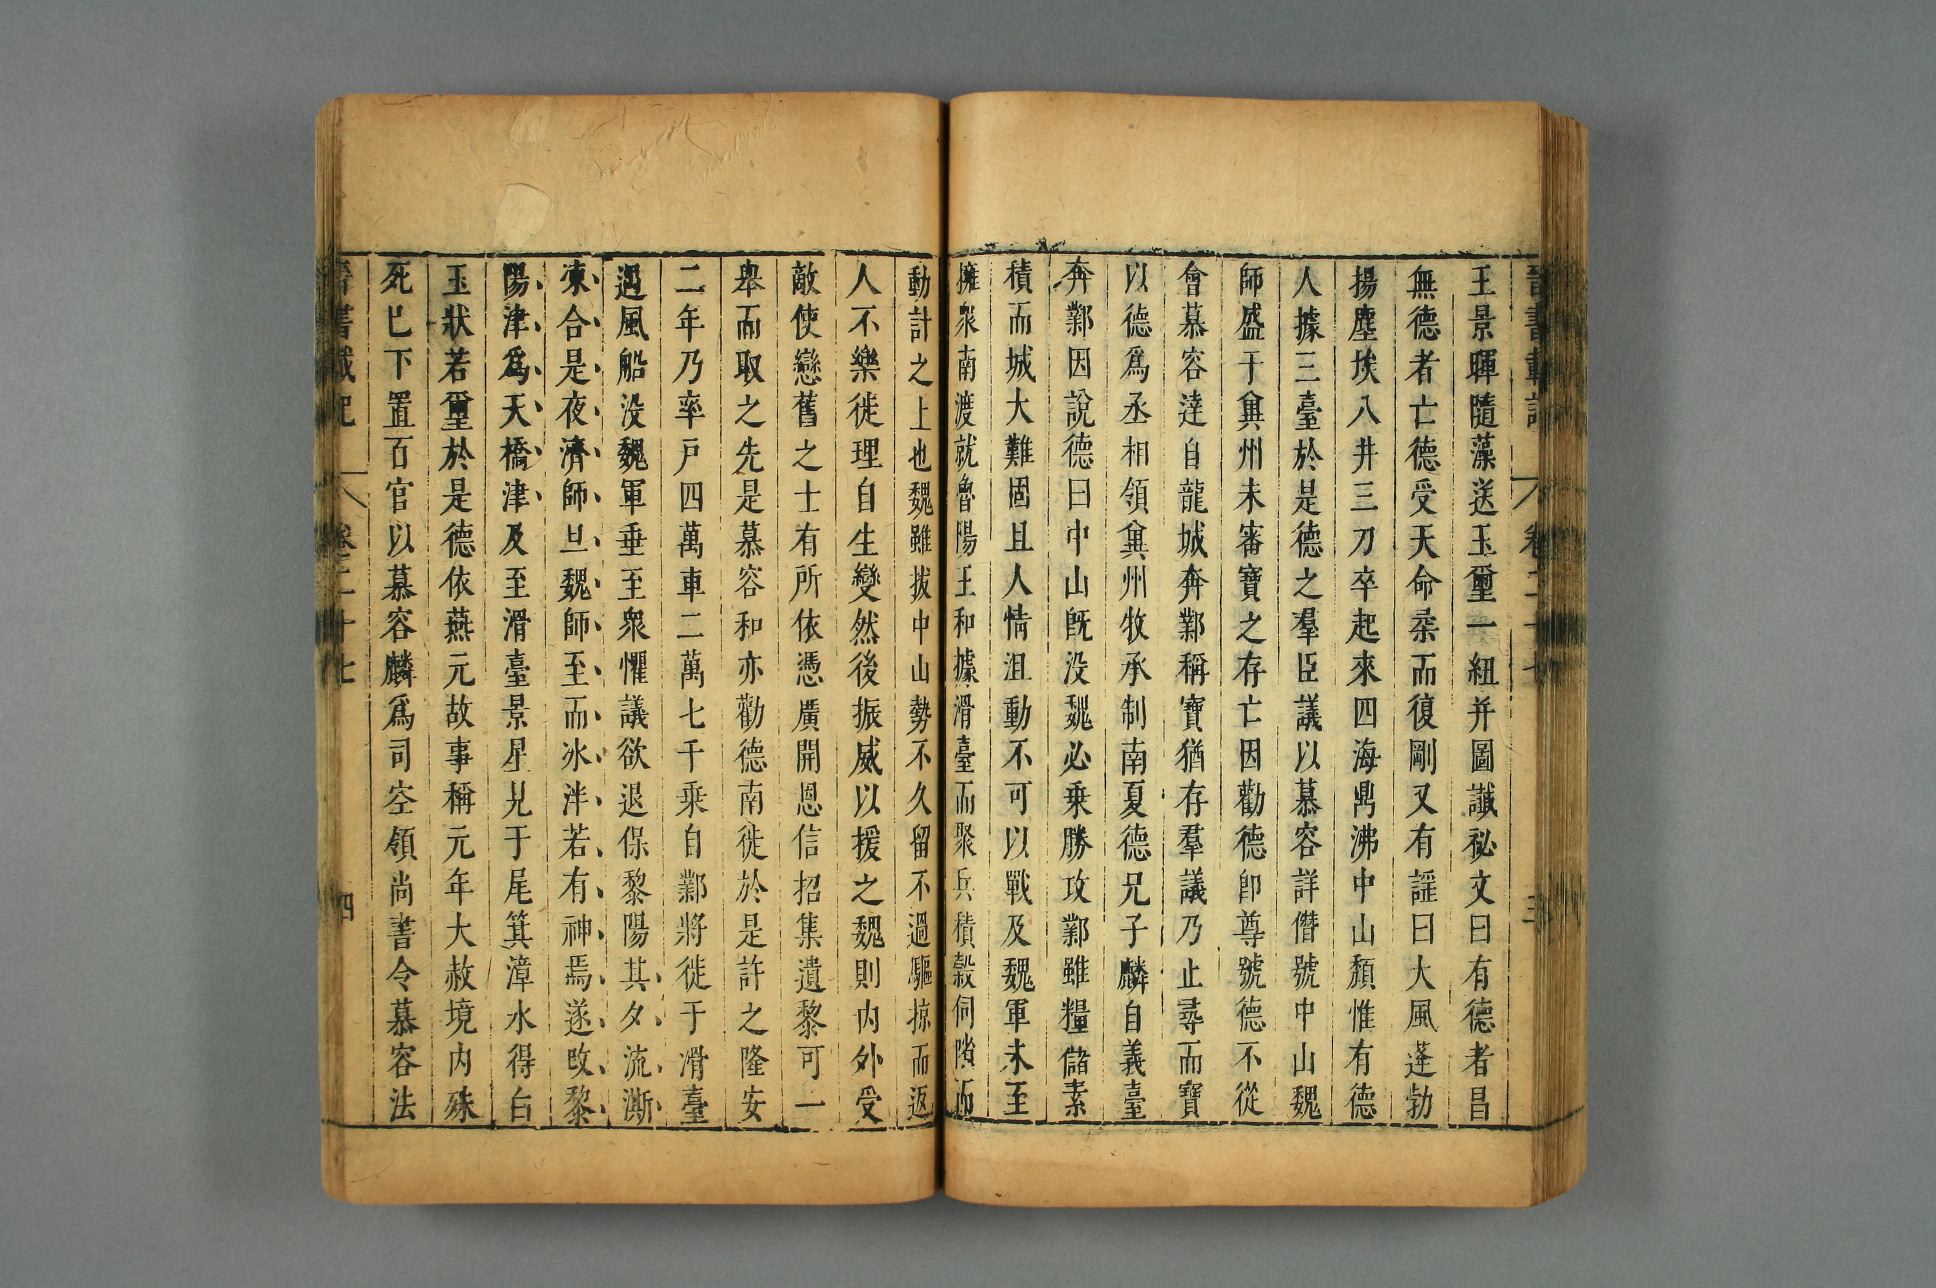 晉書載記 卷二十七 三
王景暉隨藻送玉璽一紐并圖讖祕文曰有德者昌
無德者亡德受天命柔而復剛又有謡曰大風蓬勃
揚塵埃八井三刀卒起來四海鼎沸中山頹惟有德
人據三臺於是德之羣臣議以慕容詳僭號中山魏
師盛于兾州未審寶之存亡因勸德卽尊號德不從
會慕容逹自龍城奔鄴稱寶猶存羣議乃止尋而寶
以德爲丞相領兾州牧承制南夏德兄子麟自義臺
奔鄴因說德曰中山旣没魏必乗勝攻鄴雖糧儲素
積而城大難固且人情沮動不可以戰及魏軍未至
擁衆南渡就魯陽王和據滑臺而聚兵積穀伺隙而
動計之上也魏雖拔中山勢不久留不過驅掠而返
人不樂徙理自生變然後振威以援之魏則内外受
敵使戀舊之士有所依憑廣開恩信招集遺黎可一
舉而取之先是慕容和亦勸德南徙於是許之隆安
二年乃率戸四萬車二萬七千乗自鄴將徙于滑臺
遇風船没魏軍垂至衆懼議欲退保黎陽其夕流澌
凍合是夜濟師旦魏師至而冰泮若有神焉遂改黎
陽津爲天橋津及至滑臺景星見于尾箕漳水得白
玉狀若璽於是德依燕元故事稱元年大赦境内殊
死已下置百官以慕容麟爲司空領尚書令慕容法
晉書載記 卷二十七 四